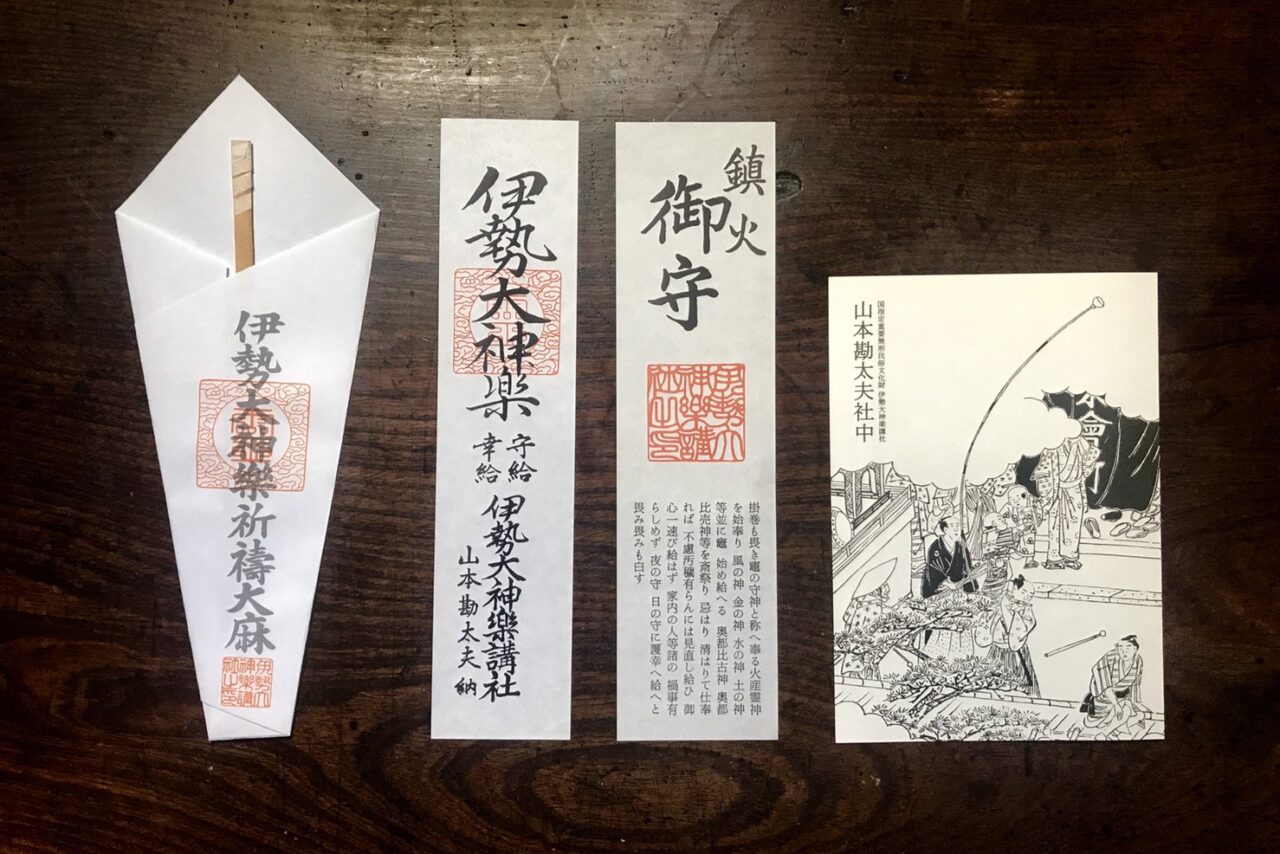 伊勢大神樂祈禱大麻
伊勢大神楽
守給
幸給
伊勢大神樂講社
山本勘太夫 納
鎮火
御守
掛巻も畏き竈の守神と称へ奉る火産霊神
を始奉り 風の神 金の神 水の神 土の神
等並に竈 始め給へる 奥都比古神 奥都
比売神等を斎祭り 忌はり 清はりて仕奉
れば 不慮汚穢有らんには見直し給ひ 御
心一速び給はず 家内の人等諸の 禍事有
らしめず 夜の守 日の守に護幸へ給へと
畏み畏みも白す
国指定重要無形民俗文化財 伊勢大神楽講社
山本勘太夫社中